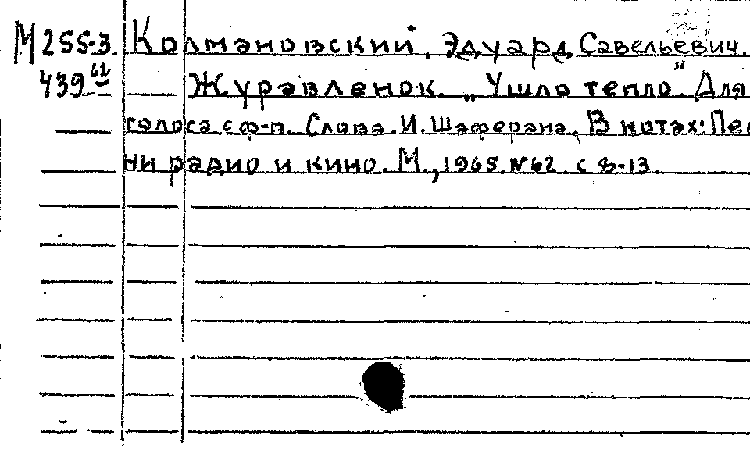 М 255-3 Колмановский, Эдуард Савельевич.
439 Журавленок. „Ушло тепло". Для
голоса с ф-п. Слова И. Шаферана, В нотах: Пес
ни радио и кино. М., 1965. №62. с 8-13.